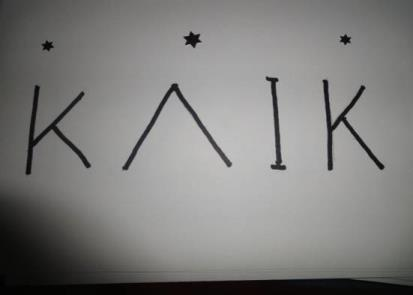 KΛIK